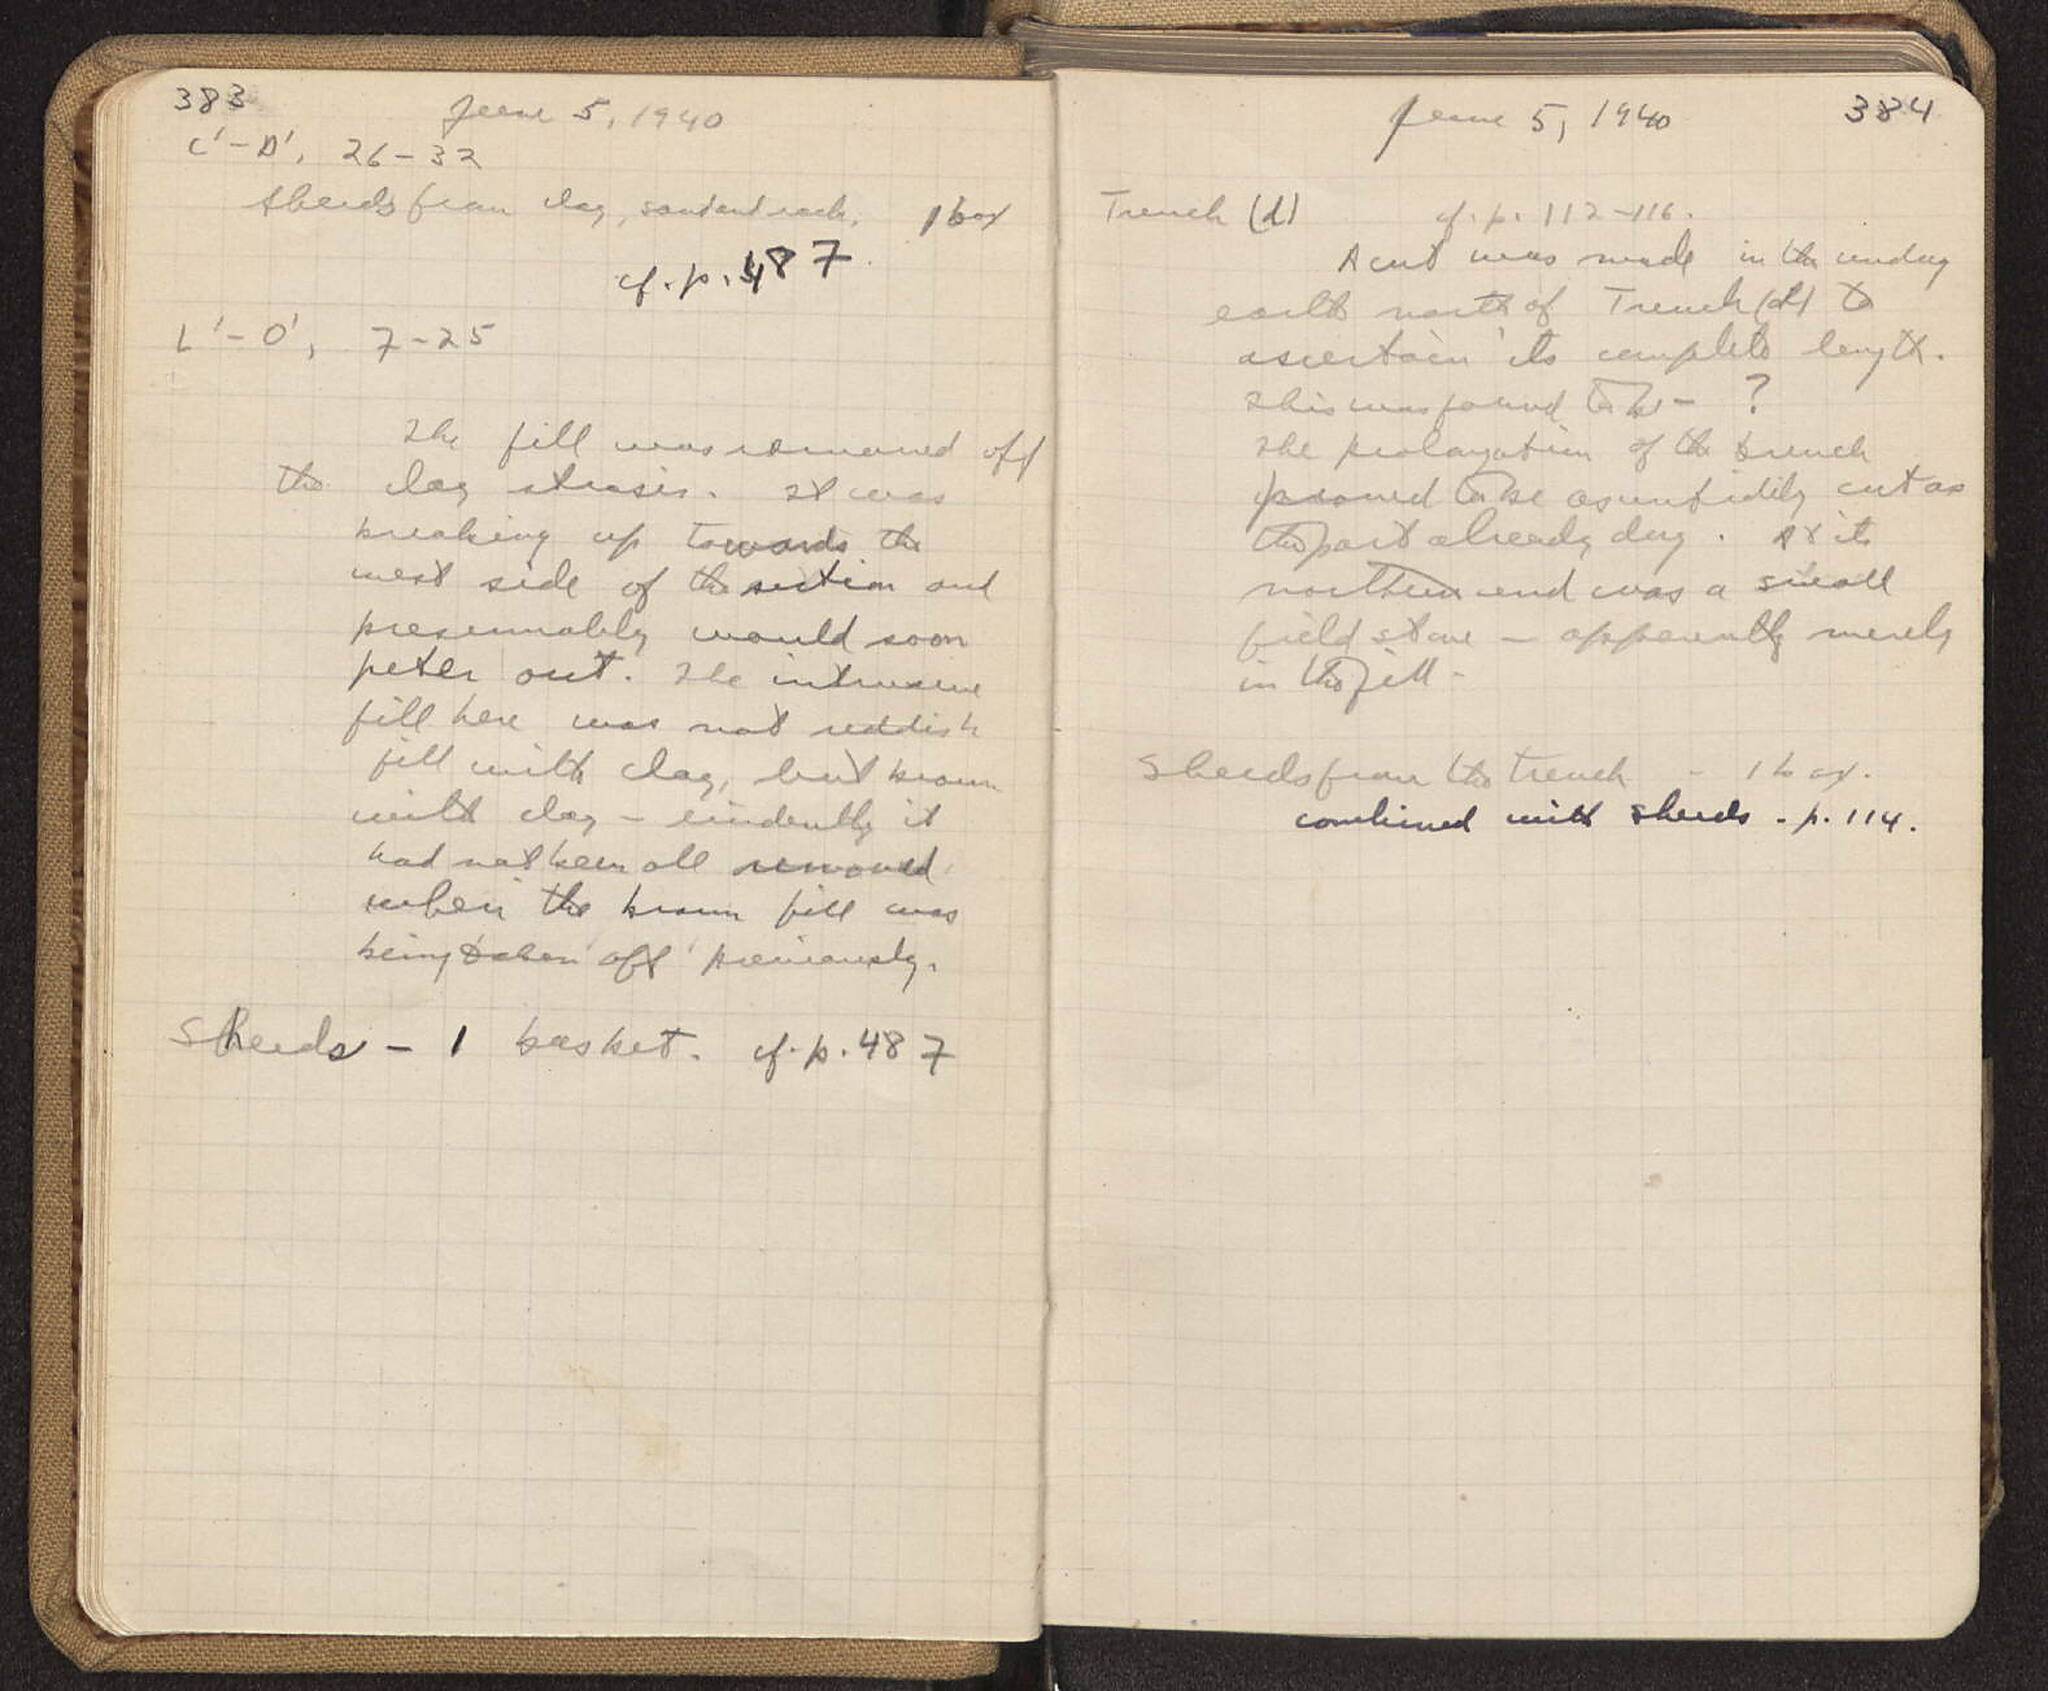 383
June 5, 1940
C'-D', 26-32
Sherds from clay, sand and rock. 1 box
cf. p. 487
L'-O', 7-25
The fill was removed off
the clay strosis. It was
breaking up towards the
west side of the section and
presumably would soon
peter out. The intrusive
fill here was not reddish
fill with clay, but brown
with clay - evidently it
had not been all removed
when the brown fill was
being taken off previously.
Sherds - 1 basket. cf. p. 487
June 5, 1940
384
Trench (d) cf. p. 112-116.
A cut was made in the undug
earth north of Trench (d) to
ascertain its complete length.
This was found to be - ?
The prolongation of the trench
proved to be as untidily cut as
the part already dug. At its
northern end was a small
field stone - apparently merely
in the fill.
Sherds from the trench - 1 box.
combined with sherds - p. 114.